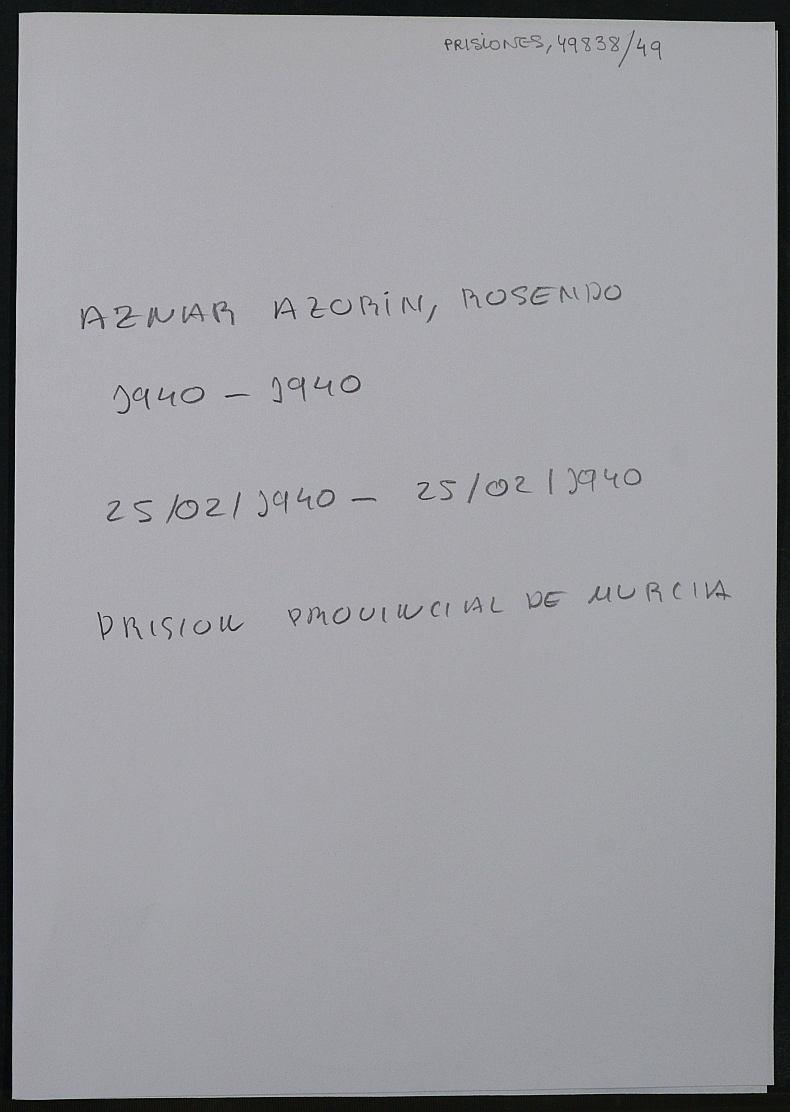 PRISIONES, 49838/49
AZNAR AZORIN, ROSENDO
1940 - 1940
25/02/1940 - 25/02/1940
PRISION PROVINCIAL DE MURCIA